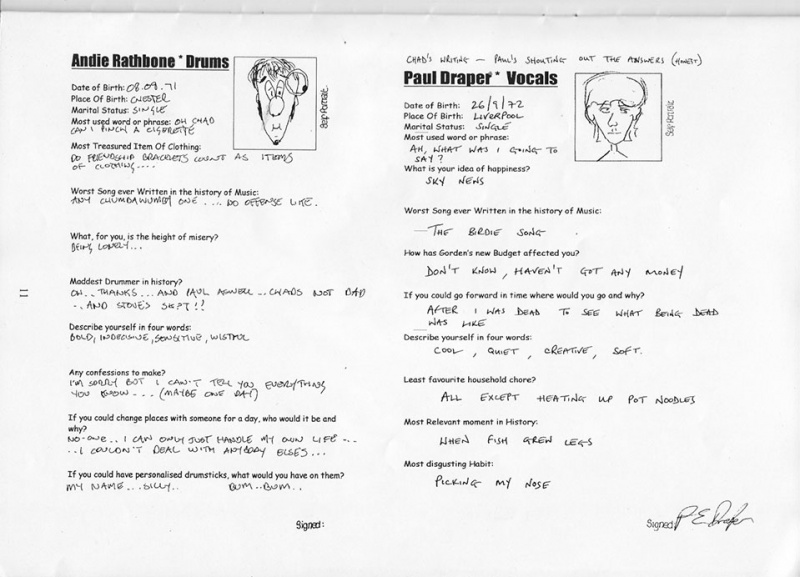 Andie Rathbone * Drums
Date of Birth: 08.09.71
Place Of Birth: CHESTER
Marital Status: SINGLE
Most used word or phrase: OH CHAD
CAN I PINCH A CIGERETTE
Self-Portrait
Most Treasured Item Of Clothing:
DO FRIENDSHIP BRACELETS COUNT AS ITEMS
OF CLOTHING....
Worst Song ever Written in the history of Music:
ANY CHUMBAWUMBA ONE .... NO OFFENSE LIKE.
What, for you, is the height of misery?
BEING LONELY...
Maddest Drummer in history?
OH.. THANKS... AND PAUL AGNELL .. CHADS NOT BAD
.. AND STOVES SHIT!!
Describe yourself in four words:
BOLD, INDECISIVE, SENSITIVE, WISTFUL
Any confessions to make?
I'M SORRY BUT I CAN'T TELL YOU EVERYTHING
YOU KNOW... (MAYBE ONE DAY)
If you could change places with someone for a day, who would it be and
why?
NO-ONE.. I CAN ONLY JUST HANDLE MY OWN LIFE ...
.. I COULDN'T DEAL WITH ANYBODY ELSES...
If you could have personalised drumsticks, what would you have on them?
MY NAME... SILLY.. BUM..BUM..
Signed:
11
CHAD'S WRITING — PAUL'S SHOUTING OUT THE ANSWERS (HONEST)
Paul Draper * Vocals
Date of Birth: 26/9/72
Place Of Birth: LIVERPOOL
Marital Status: SINGLE
Most used word or phrase:
AH, WHAT WAS I GOING TO
SAY?
Self-Portrait
What is your idea of happiness?
SKY NEWS
Worst Song ever Written in the history of Music:
THE BIRDIE SONG
How has Gorden's new Budget affected you?
DON'T KNOW, HAVEN'T GOT ANY MONEY
If you could go forward in time where would you go and why?
AFTER I WAS DEAD TO SEE WHAT BEING DEAD
WAS LIKE
Describe yourself in four words:
COOL, QUIET, CREATIVE, SOFT.
Least favourite household chore?
ALL EXCEPT HEATING UP POT NOODLES
Most Relevant moment in History:
WHEN FISH GREW LEGS
Most disgusting Habit:
PICKING MY NOSE
Signed P E Draper